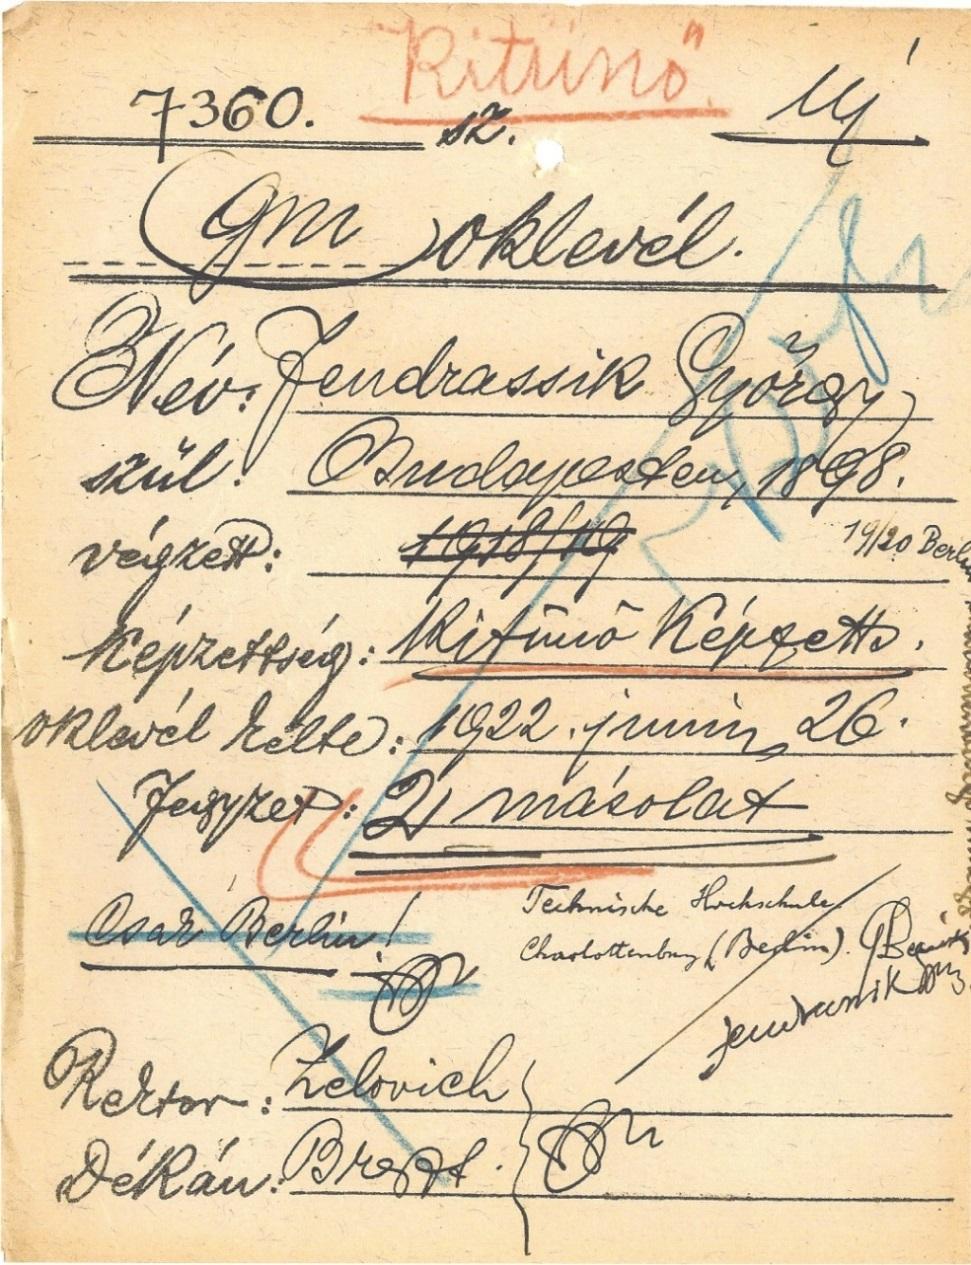 "Kitünő"
7360. sz. Uj
Gm oklevél.
Név: Jendrassik György
szül: Budapesten, 1898.
végzett: 1918/19 19/20 Berlin
Képzettség: Kitűnő Képzett.
oklevél kelte: 1922. junius 26.
Jegyzet: 2 másolat
Csak Berlin!
Technische Hochschule
Charlottenburg (Berlin).
Jendrassik
Rektor: Zelovich
Dékán: